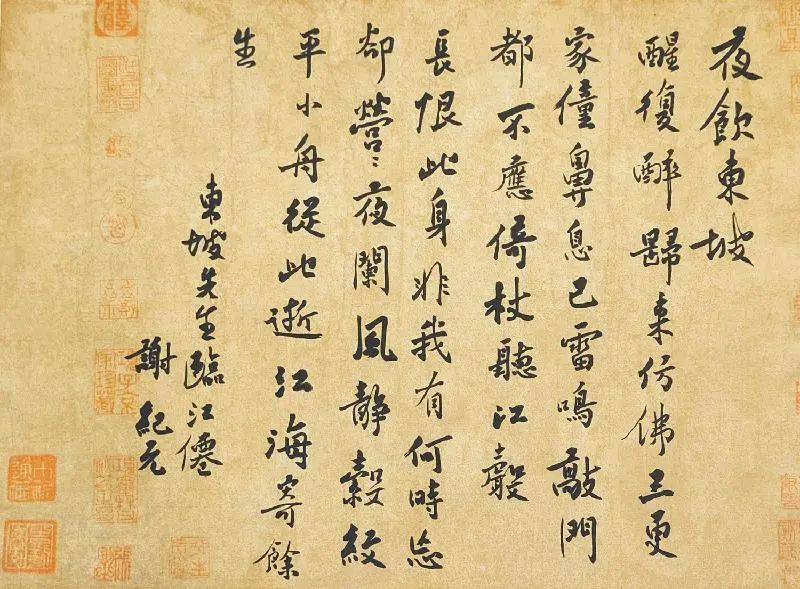 夜飲東坡
醒復醉歸来仿佛三更
家僮鼻息已雷鳴敲門
都不應倚杖聽江聲
長恨此身非我有何時忘
卻營〻夜闌風靜縠紋
平小舟從此逝江海寄餘
生
東坡先生臨江僊
謝紀元